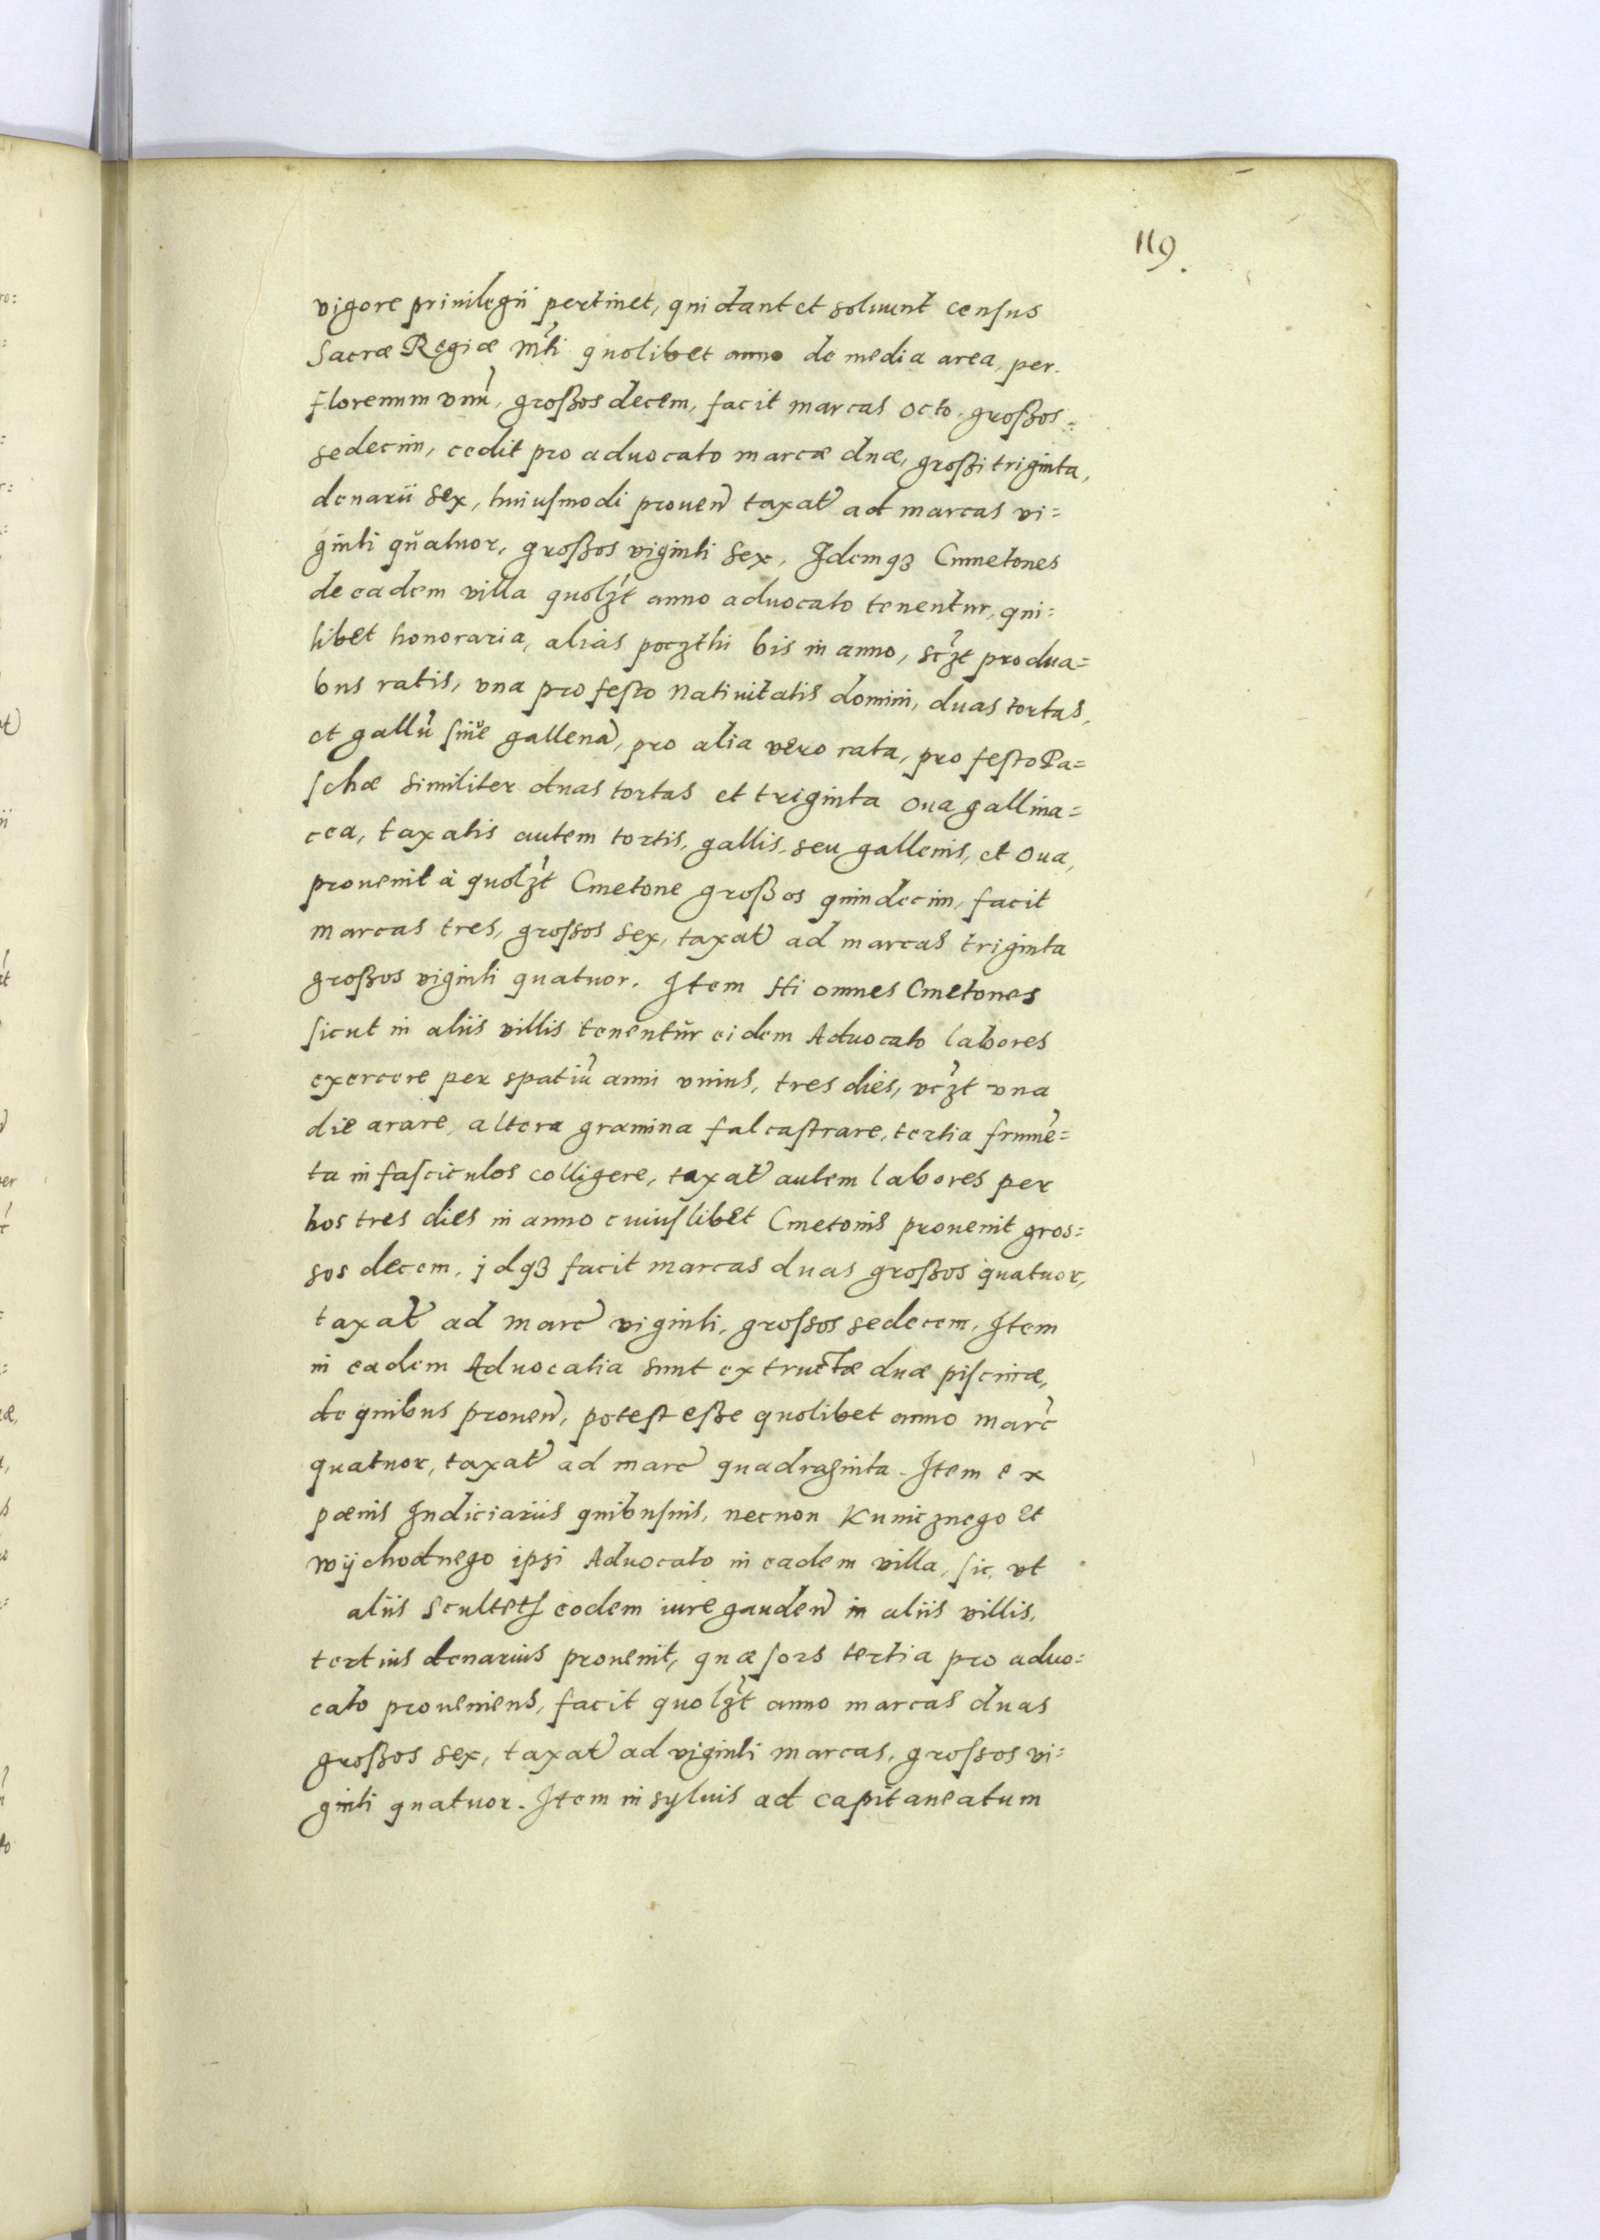 119.
vigore priuilegii pertinet, qui dant et soluunt census
Sacræ Regiæ Mti quolibet anno de media area, per
florenum vnũ, großos decem, facit marcas octo, großos
sedecim, cedit pro aduocato marcæ duæ, großi triginta,
denarii sex, huiusmodi prouen taxat ad marcas vi=
ginti quatuor, großos viginti sex, Idemqꝫ Cmmetones
de eadem villa quolꝫt anno aduocato tenentur, qui=
libet honoraria, alias poczthi bis in anno, scꝫt pro dua=
bus ratis, vna pro festo Natiuitatis domini, duas tortas,
et gallũ siue gallenã, pro alia vero rata, pro festo Pa=
schæ similiter duas tortas et triginta oua gallina=
cea, taxatis autem tortis, gallis, seu gallenis, et oua,
prouenit à quolꝫt Cmetone großos quindecim, facit
marcas tres, grossos sex, taxat ad marcas triginta
großos viginti quatuor. Item Hi omnes Cmetones
sicut in aliis villis tenentŭr eidem Aduocato labores
exercere per spatiũ anni vnius, tres dies, vcꝫt vna
die arare, altera gramina falcastrare, tertia frumẽ=
ta in fasciculos colligere, taxat autem labores per
hos tres dies in anno cuiuslibet Cmetonis prouenit gros=
sos decem, jdqꝫ facit marcas duas großos quatuor,
taxat ad marc viginti, grossos sedecem. Item
in eadem Aduocatia sunt extructæ duæ piscinæ,
de quibus prouen, potest eße quolibet anno marc
quatuor, taxat ad marc quadraginta. Item ex
pœnis Iudiciariis quibusuis, necnon Kunicznego et
wÿchodnego ipsi Aduocato in eadem villa, sic, vt
aliis Scultetꝭ eodem iure gauden in aliis villis,
tertius denarius prouenit, quæ sors tertia pro aduo=
cato proueniens, facit quolꝫt anno marcas duas
großos sex, taxat ad viginti marcas, grossos vi=
ginti quatuor. Item in syluis ad capitaneatum